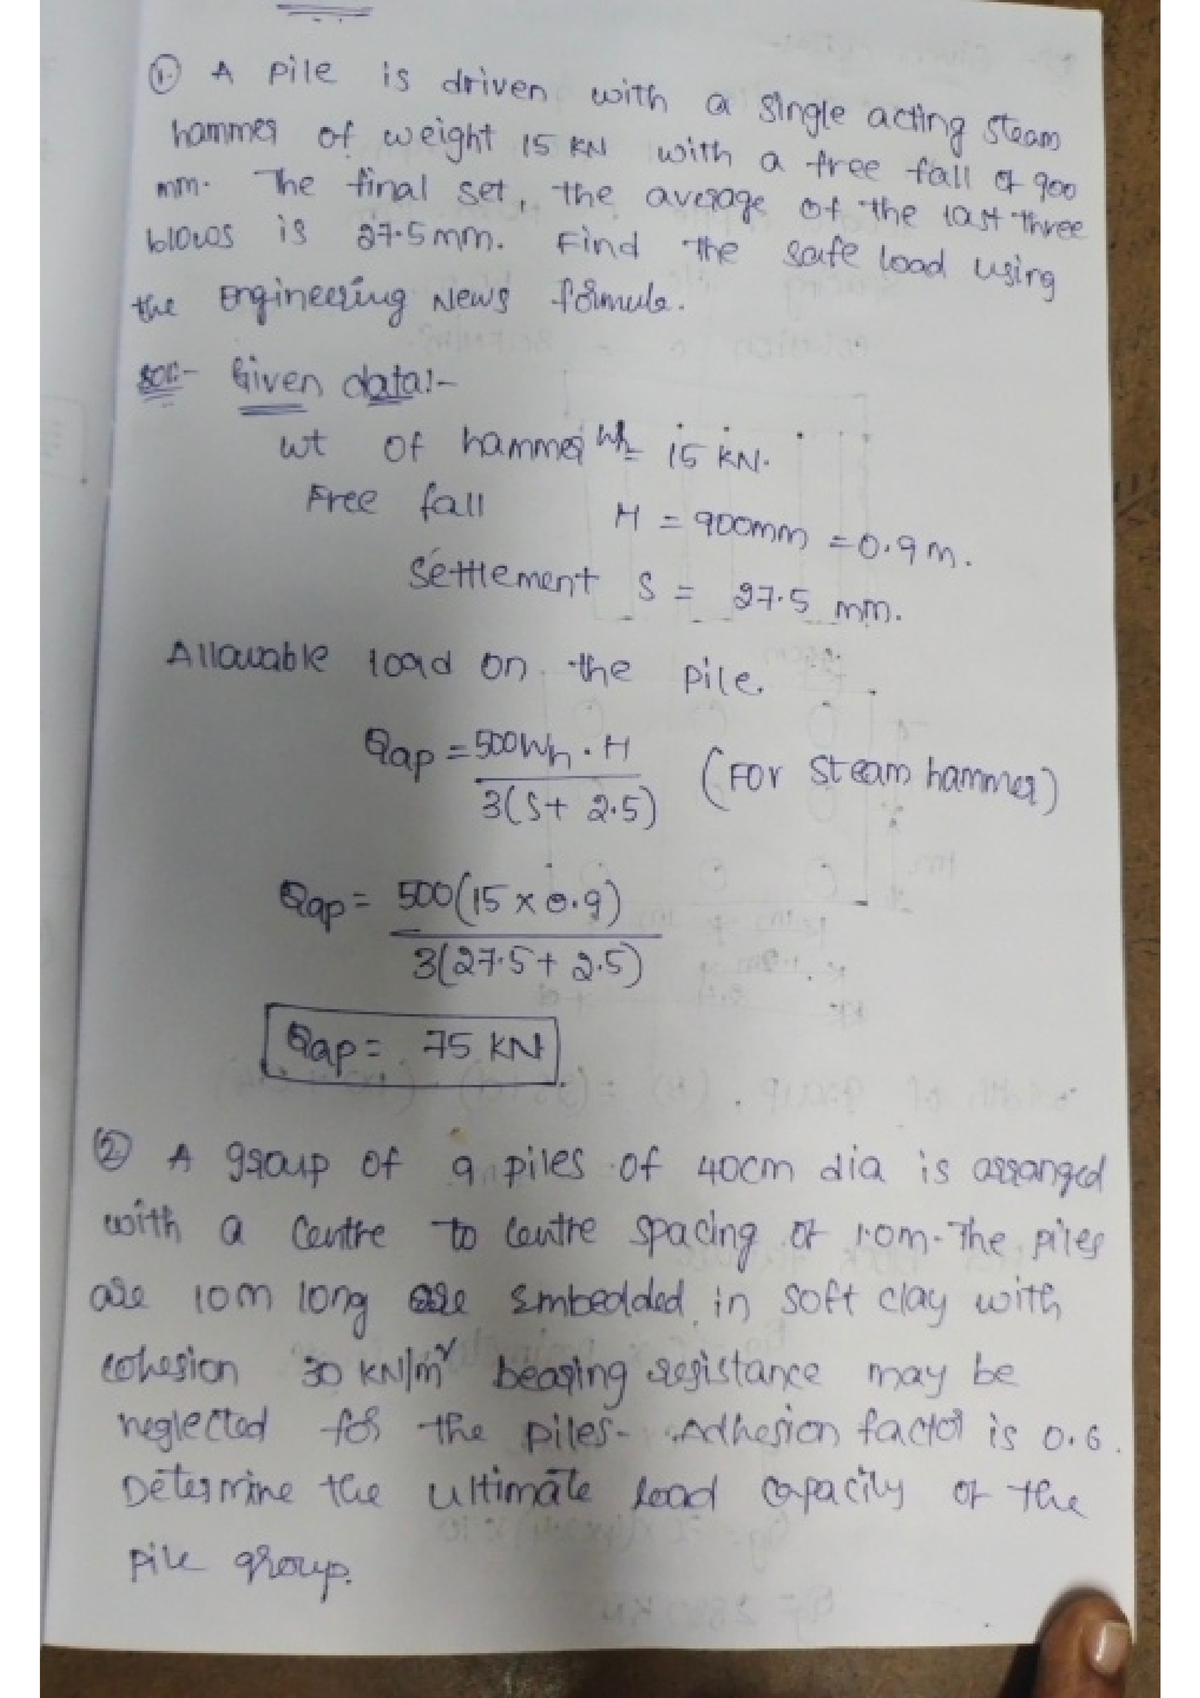 ① A pile is driven with a single acting steam
hammer of weight 15 KN with a free fall of 900
mm. The final set, the average of the last three
blows is 27.5mm. Find the safe load using
the Engineering News formula.
Sol:- Given data:-
wt of hammer Wh = 15 KN.
Free fall H = 900mm = 0.9m.
Settlement S = 27.5 mm.
Allowable load on the pile.
Qap = 500Wh . H (For steam hammer)
3(S+ 2.5)
Qap = 500(15 x 0.9)
3(27.5+ 2.5)
Qap = 75 KN
② A group of 9 piles of 40cm dia is arranged
with a Centre to Centre spacing of 1.0m. The piles
are 10m long are Embedded in soft clay with
cohesion 30 KN/m² bearing resistance may be
neglected for the piles- Adhesion factor is 0.6.
Determine the ultimate load capacity of the
pile group.